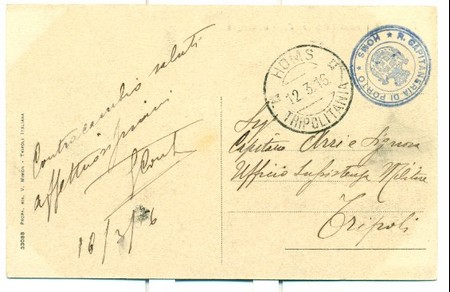 Contraccambio saluti
affettuosissimi
Cont
10/3/16
33088 PROPR. RIS. V. MOSCHI - TRIPOLI ITALIANA
HOMS
12.3.16
TRIPOLITANIA
R. CAPITANERIA DI PORTO
HOMS
Capitano Arri e Signora
Ufficio Sussistenza Militare
Tripoli